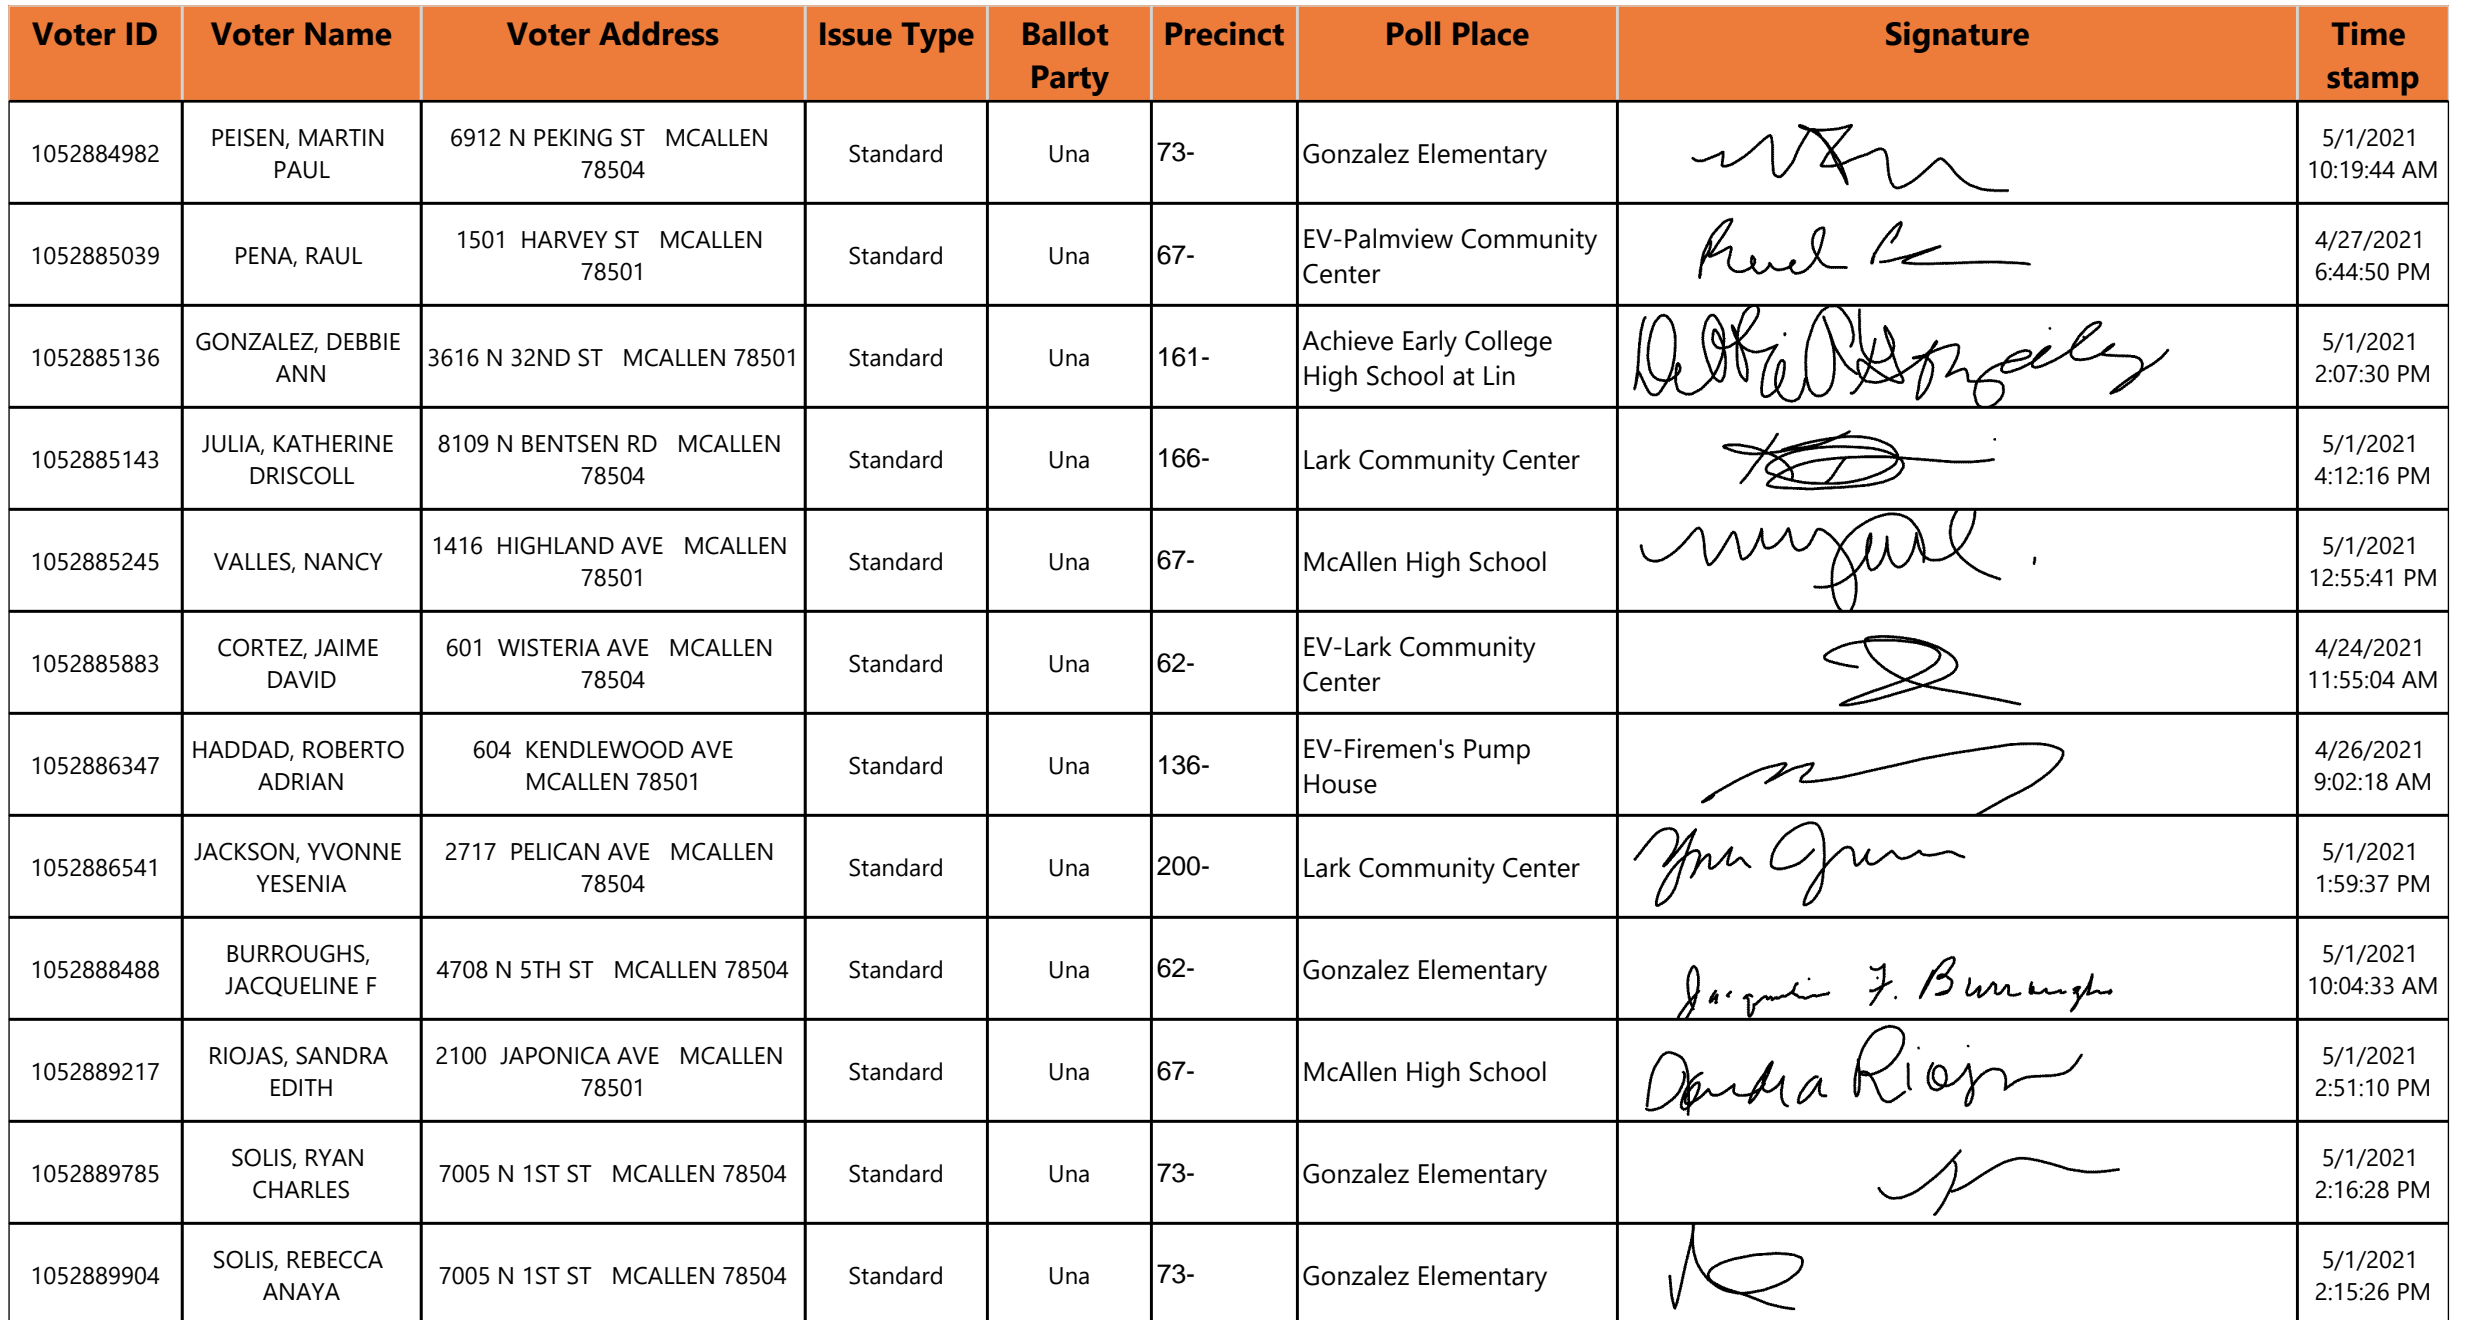 Voter ID Voter Name Voter Address Issue Type Ballot Party Precinct Poll Place Signature Time stamp
1052884982 PEISEN, MARTIN PAUL 6912 N PEKING ST MCALLEN 78504 Standard Una 73- Gonzalez Elementary 5/1/2021 10:19:44 AM
1052885039 PENA, RAUL 1501 HARVEY ST MCALLEN 78501 Standard Una 67- EV-Palmview Community Center 4/27/2021 6:44:50 PM
1052885136 GONZALEZ, DEBBIE ANN 3616 N 32ND ST MCALLEN 78501 Standard Una 161- Achieve Early College High School at Lin 5/1/2021 2:07:30 PM
1052885143 JULIA, KATHERINE DRISCOLL 8109 N BENTSEN RD MCALLEN 78504 Standard Una 166- Lark Community Center 5/1/2021 4:12:16 PM
1052885245 VALLES, NANCY 1416 HIGHLAND AVE MCALLEN 78501 Standard Una 67- McAllen High School 5/1/2021 12:55:41 PM
1052885883 CORTEZ, JAIME DAVID 601 WISTERIA AVE MCALLEN 78504 Standard Una 62- EV-Lark Community Center 4/24/2021 11:55:04 AM
1052886347 HADDAD, ROBERTO ADRIAN 604 KENDLEWOOD AVE MCALLEN 78501 Standard Una 136- EV-Firemen's Pump House 4/26/2021 9:02:18 AM
1052886541 JACKSON, YVONNE YESENIA 2717 PELICAN AVE MCALLEN 78504 Standard Una 200- Lark Community Center 5/1/2021 1:59:37 PM
1052888488 BURROUGHS, JACQUELINE F 4708 N 5TH ST MCALLEN 78504 Standard Una 62- Gonzalez Elementary Jacqueline F. Burroughs 5/1/2021 10:04:33 AM
1052889217 RIOJAS, SANDRA EDITH 2100 JAPONICA AVE MCALLEN 78501 Standard Una 67- McAllen High School Sandra Riojas 5/1/2021 2:51:10 PM
1052889785 SOLIS, RYAN CHARLES 7005 N 1ST ST MCALLEN 78504 Standard Una 73- Gonzalez Elementary 5/1/2021 2:16:28 PM
1052889904 SOLIS, REBECCA ANAYA 7005 N 1ST ST MCALLEN 78504 Standard Una 73- Gonzalez Elementary 5/1/2021 2:15:26 PM